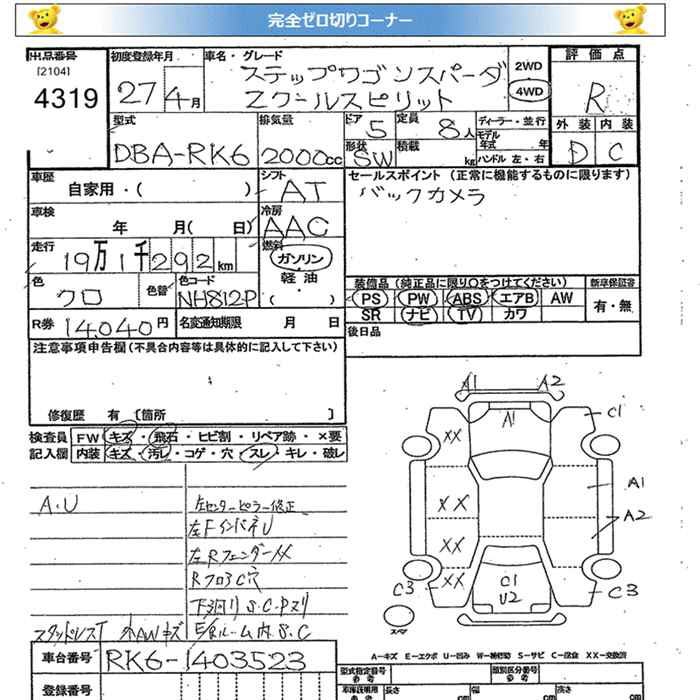 完全ゼロ切りコーナー
出品番号
[2104]
4319
初度登録年月
27年4月
車名・グレード
ステップワゴンスパーダ
Zクールスピリット
2WD
4WD
評価点
R
外装 内装
D C
型式
DBA-RK6
排気量
2000cc
ドア
5
定員
8人
形状
SW
積載
kg
ディーラー・並行
モデル年式 年
ハンドル 左・右
車歴
自家用・( )
シフト
AT
セールスポイント(正常に機能するものに限ります)
バックカメラ
車検
年 月( 日)
冷房
AAC
走行
19万1千292km
燃料
ガソリン
軽油
( )
色
クロ
色替
色コード
NH812P
装備品(純正品に限り○をつけてください)
PS PW ABS エアB AW
SR ナビ TV カワ
新車保証書
有・無
R券 14040円
名変通知期限 月 日
後日品
注意事項申告欄(不具合内容等は具体的に記入して下さい)
修復歴 有 〔箇所 〕
検査員記入欄
FW キズ・飛石・ヒビ割・リペア跡・×要
内装 キズ・汚レ・コゲ・穴・スレ・キレ・破レ
A.U
左センターピラー修正
左FインパネU
左RフェンダーXX
RフロアC穴
下回りS.C.Pヌリ
スタッドレスT
外AWキズ
E/g ルーム内 S.C
A1 A2
A1
C1
XX
A1
XX
A2
XX
C3
XX
C1
U2
C3
スペア
A-キズ E-エクボ U-凹み W-補修跡 S-サビ C-腐食 XX-交換済
車台番号
RK6-1403523
登録番号
型式指定番号
参考
類別区分番号
参考
長さ
cm
幅
cm
高さ
cm